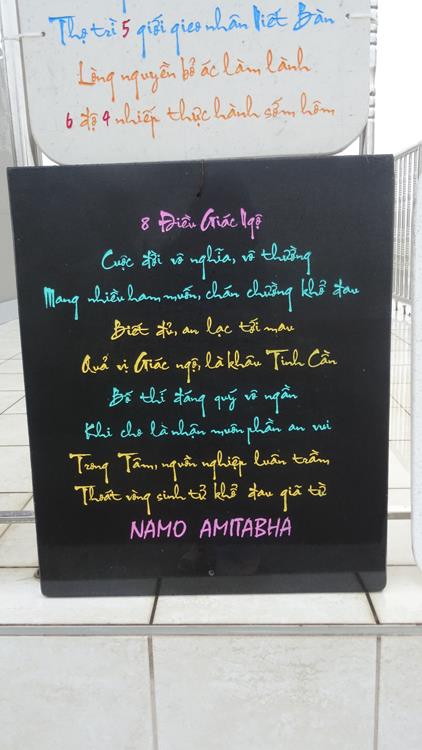 Thọ trì 5 giới gieo nhân Niết Bàn
Lòng nguyền bỏ ác làm lành
6 độ 4 nhiếp thực hành sớm hôm
8 Điều Giác Ngộ
Cuộc đời vô nghĩa, vô thường
Mang nhiều ham muốn, chán chường khổ đau
Biết đủ, an lạc tối mau
Quả vị Giác ngộ, là khâu Tinh Cần
Bố thí đáng quý vô ngần
Khi cho là nhận muôn phần an vui
Trong Tâm, nguồn nghiệp luân trầm
Thoát vòng sinh tử khổ đau giã từ
NAMO AMITABHA